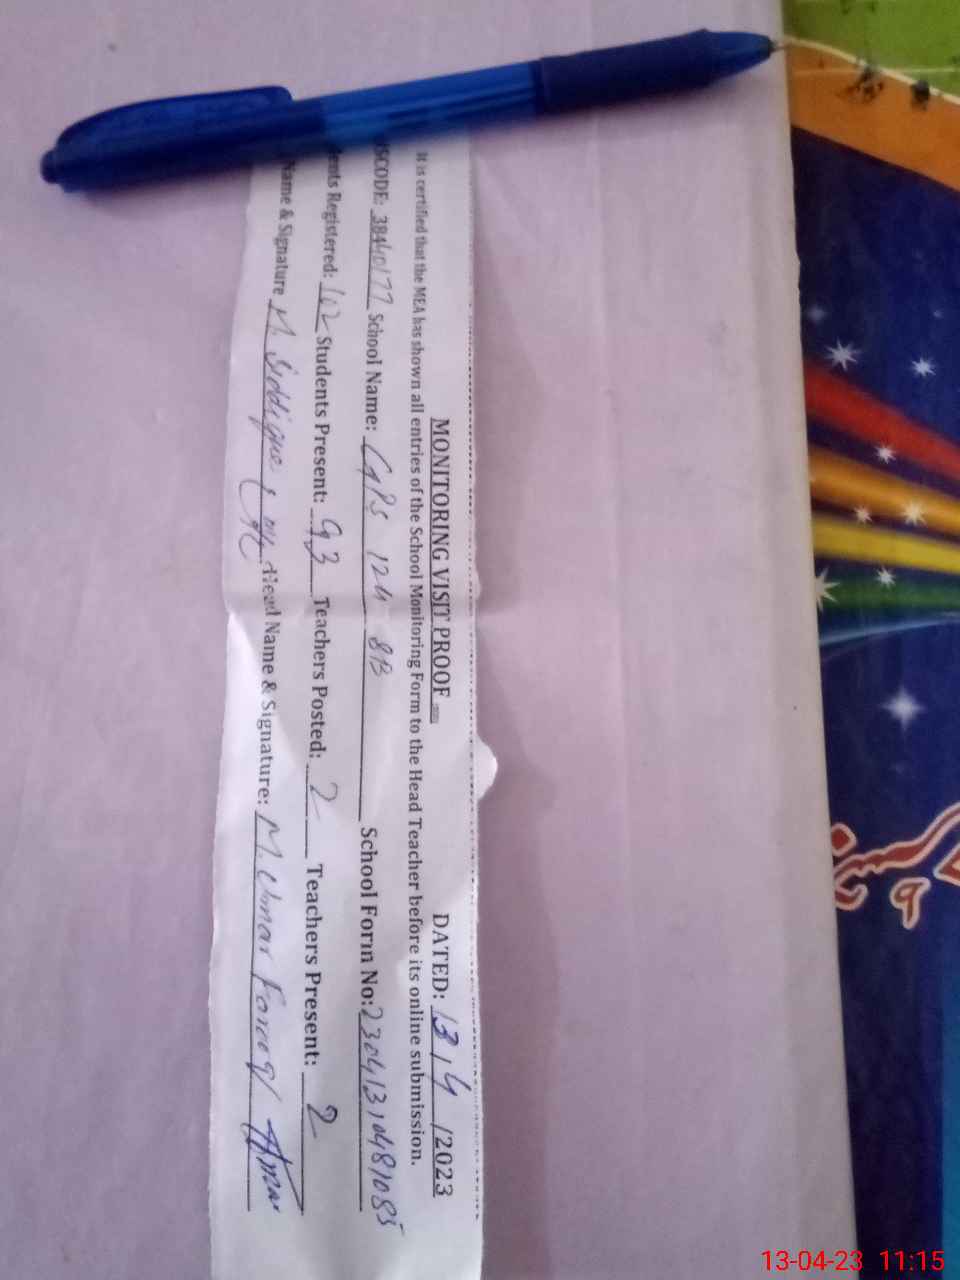 MONITORING VISIT PROOF DATED: 13/4/2023
It is certified that the MEA has shown all entries of the School Monitoring Form to the Head Teacher before its online submission.
SCODE: 38440177 School Name: GPS 124 8B School Form No: 23041310481085
dents Registered: 102 Students Present: 93 Teachers Posted: 2 Teachers Present: 2
Name & Signature M. Siddique Head Name & Signature: M. Umar Farooq
13-04-23 11:15